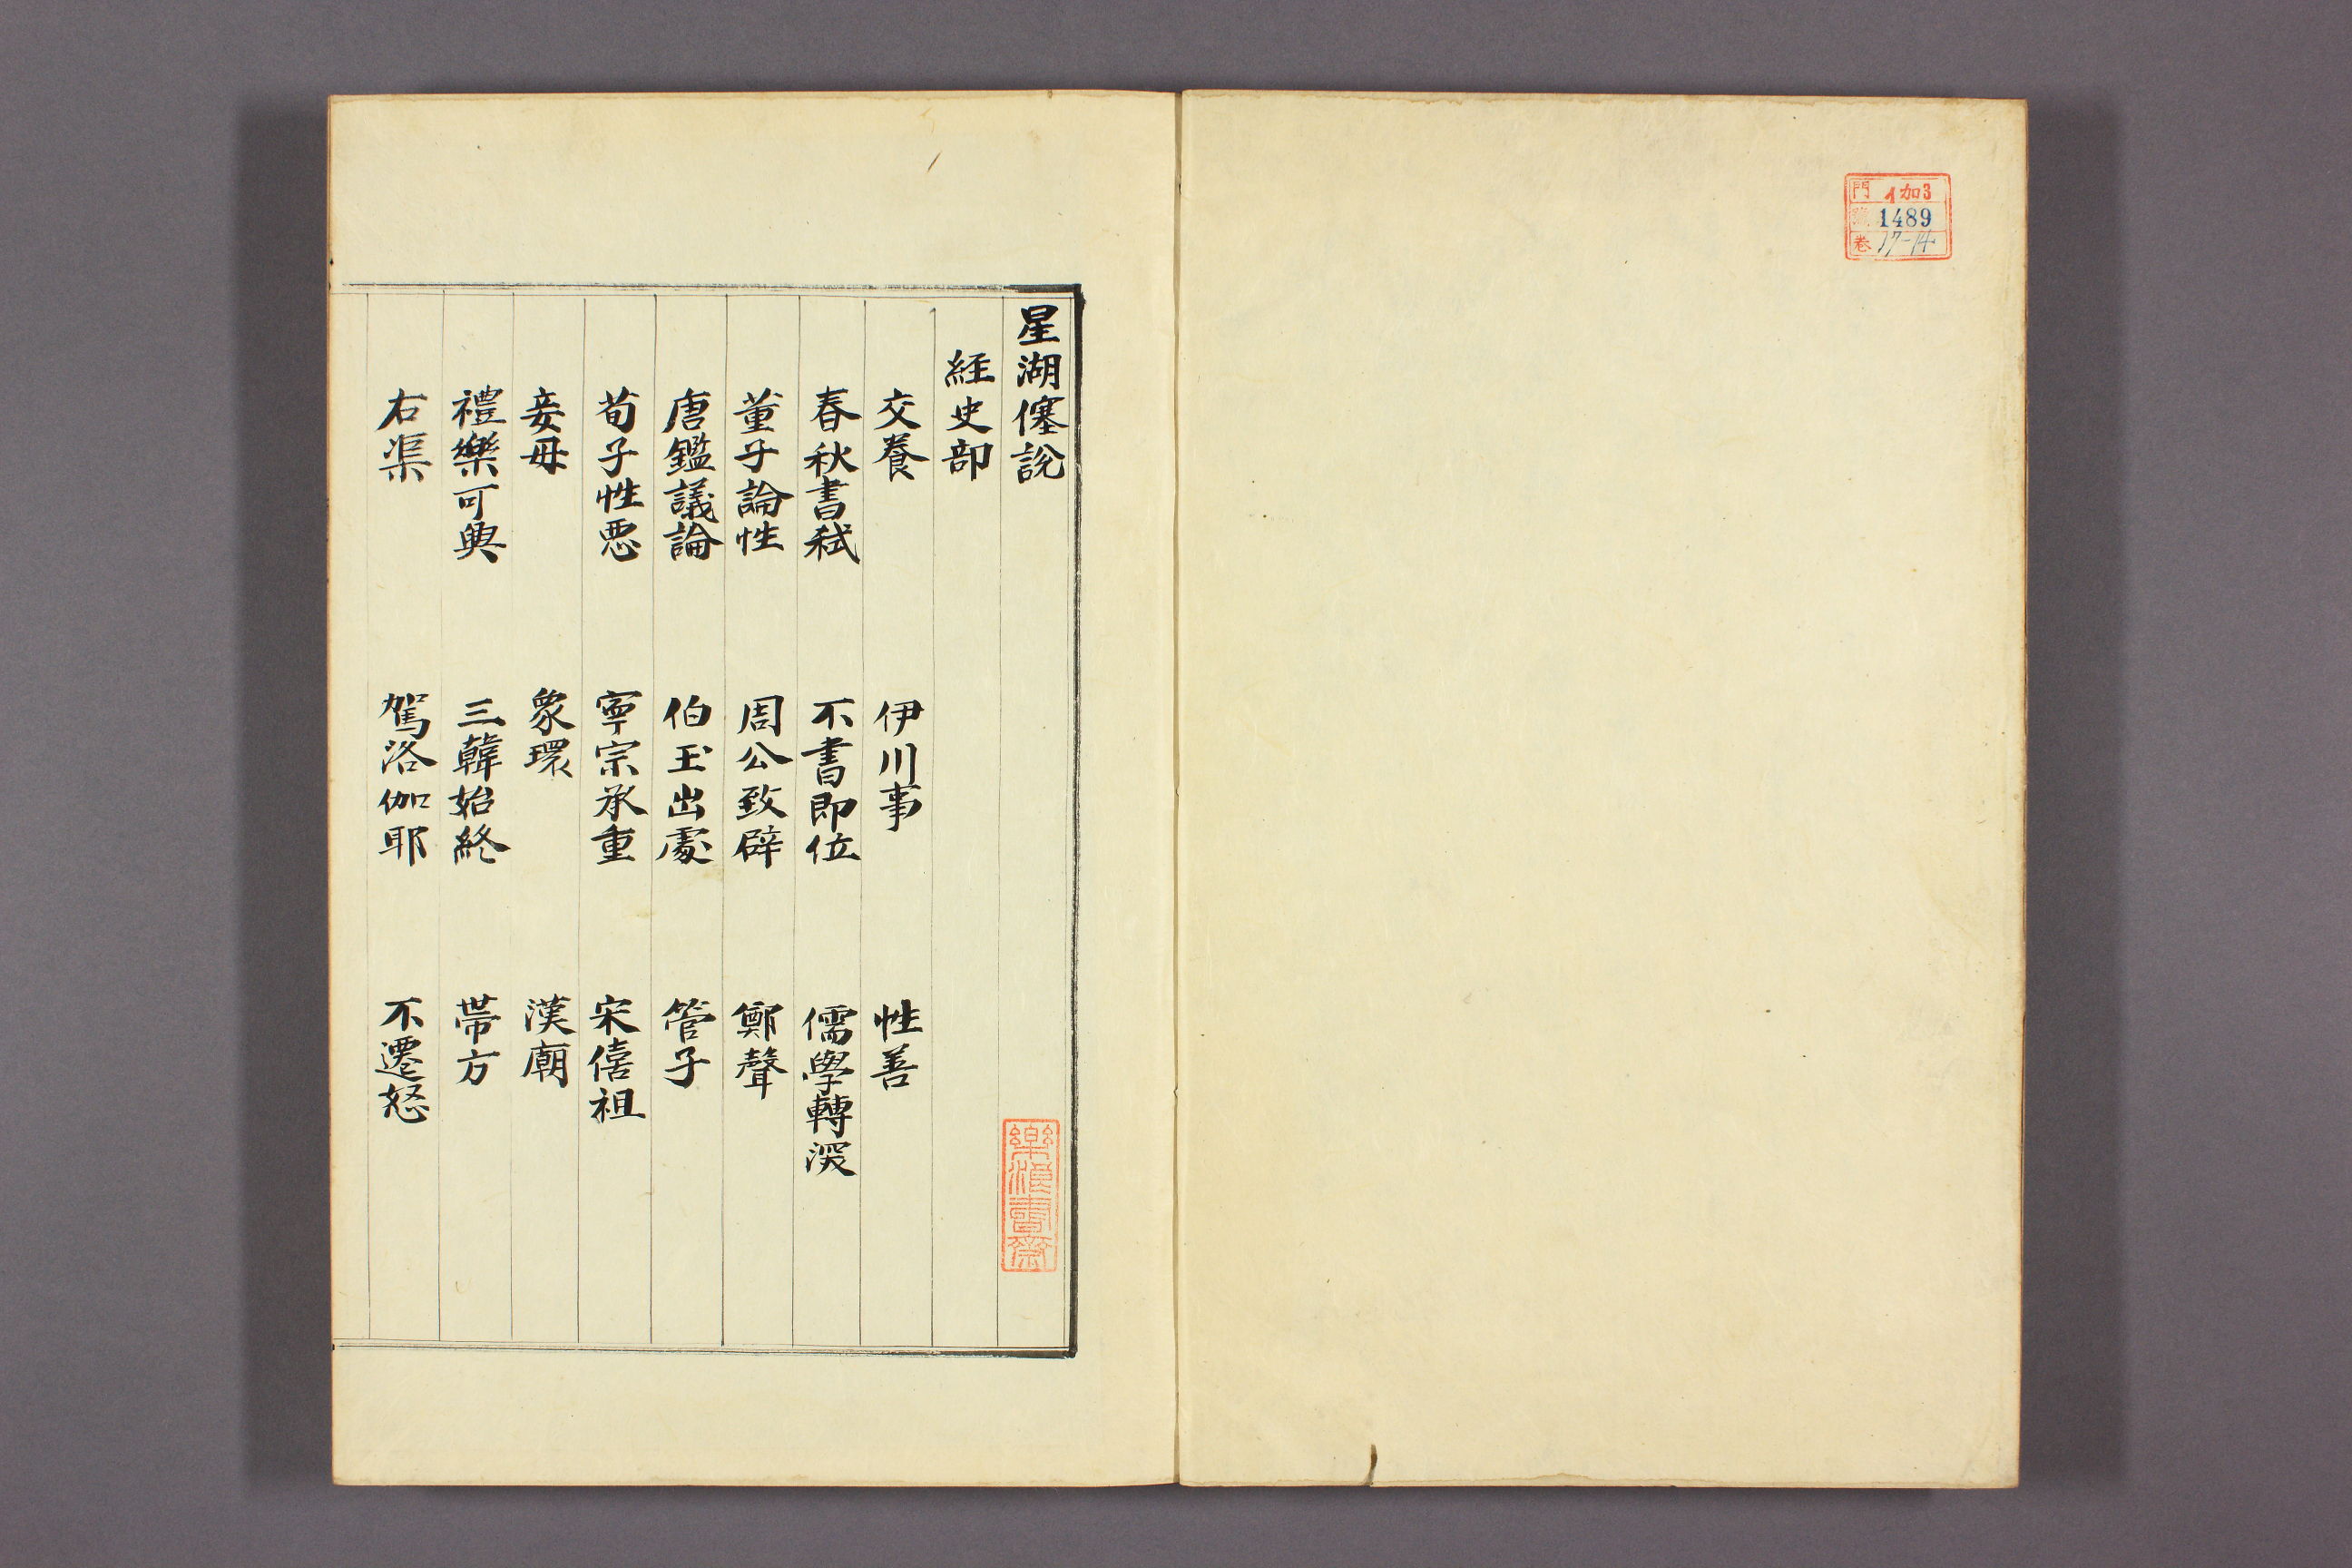 門 イ加3
號 1489
卷 17-14
星湖僿說
經史部
交養 伊川事 性善
春秋書弑 不書即位 儒學轉深
董子論性 周公致辟 鄭聲
唐鑑議論 伯玉出處 管子
荀子性悪 寧宗承重 宋僖祖
妾母 象環 漢廟
禮樂可興 三韓始終 帶方
右渠 駕洛伽耶 不遷怒
樂浪書齋